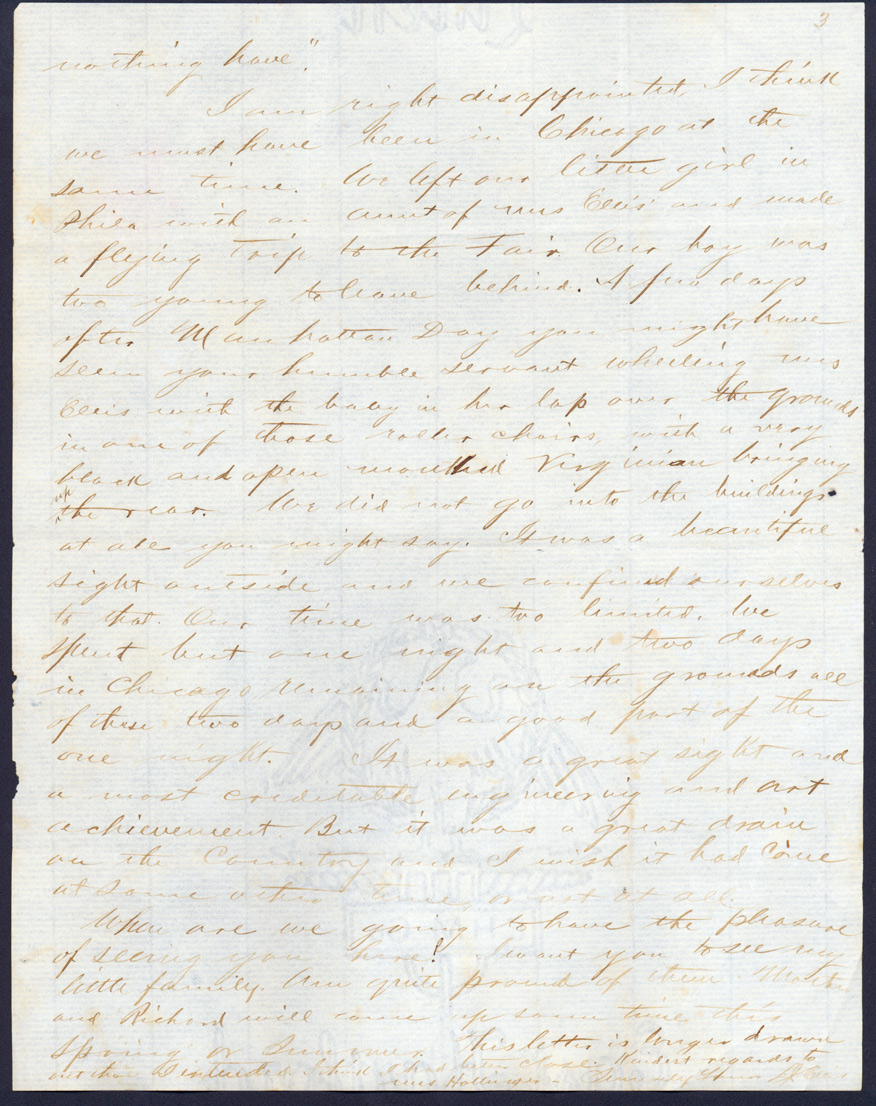 3
nothing have".
I am right disappointed, I think
we must have been in Chicago at the
same time. We left our little girl in
Phila with an aunt of Mrs Ellis' and made
a flying trip to the Fair. Our boy was
too young to leave behind. A few days
after Manhattan Day you might have
seen your humble servant wheeling Mrs
Ellis with the baby in her lap over the grounds
in one of those roller chairs, with a very
black and open mouthed Virginian bringing
up the rear. We did not go into the buildings
at all you might say. It was a beautiful
sight outside and we confined ourselves
to that. Our time was too limited. We
spent but one night and two days
in Chicago remaining on the grounds all
of these two days and a good part of the
one night. It was a great sight and
a most creditable engineering and art
achievement But it was a great drain
on the Country and I wish it had come
at some other time, or not at all.
When are we going to have the pleasure
of seeing you here! I want you to see my
little family. Am quite proud of them.
and Richard will come up some time this
Spring or Summer. This letter is longer drawn
out than I intended I think I had better close. Kindest regards to
Mrs